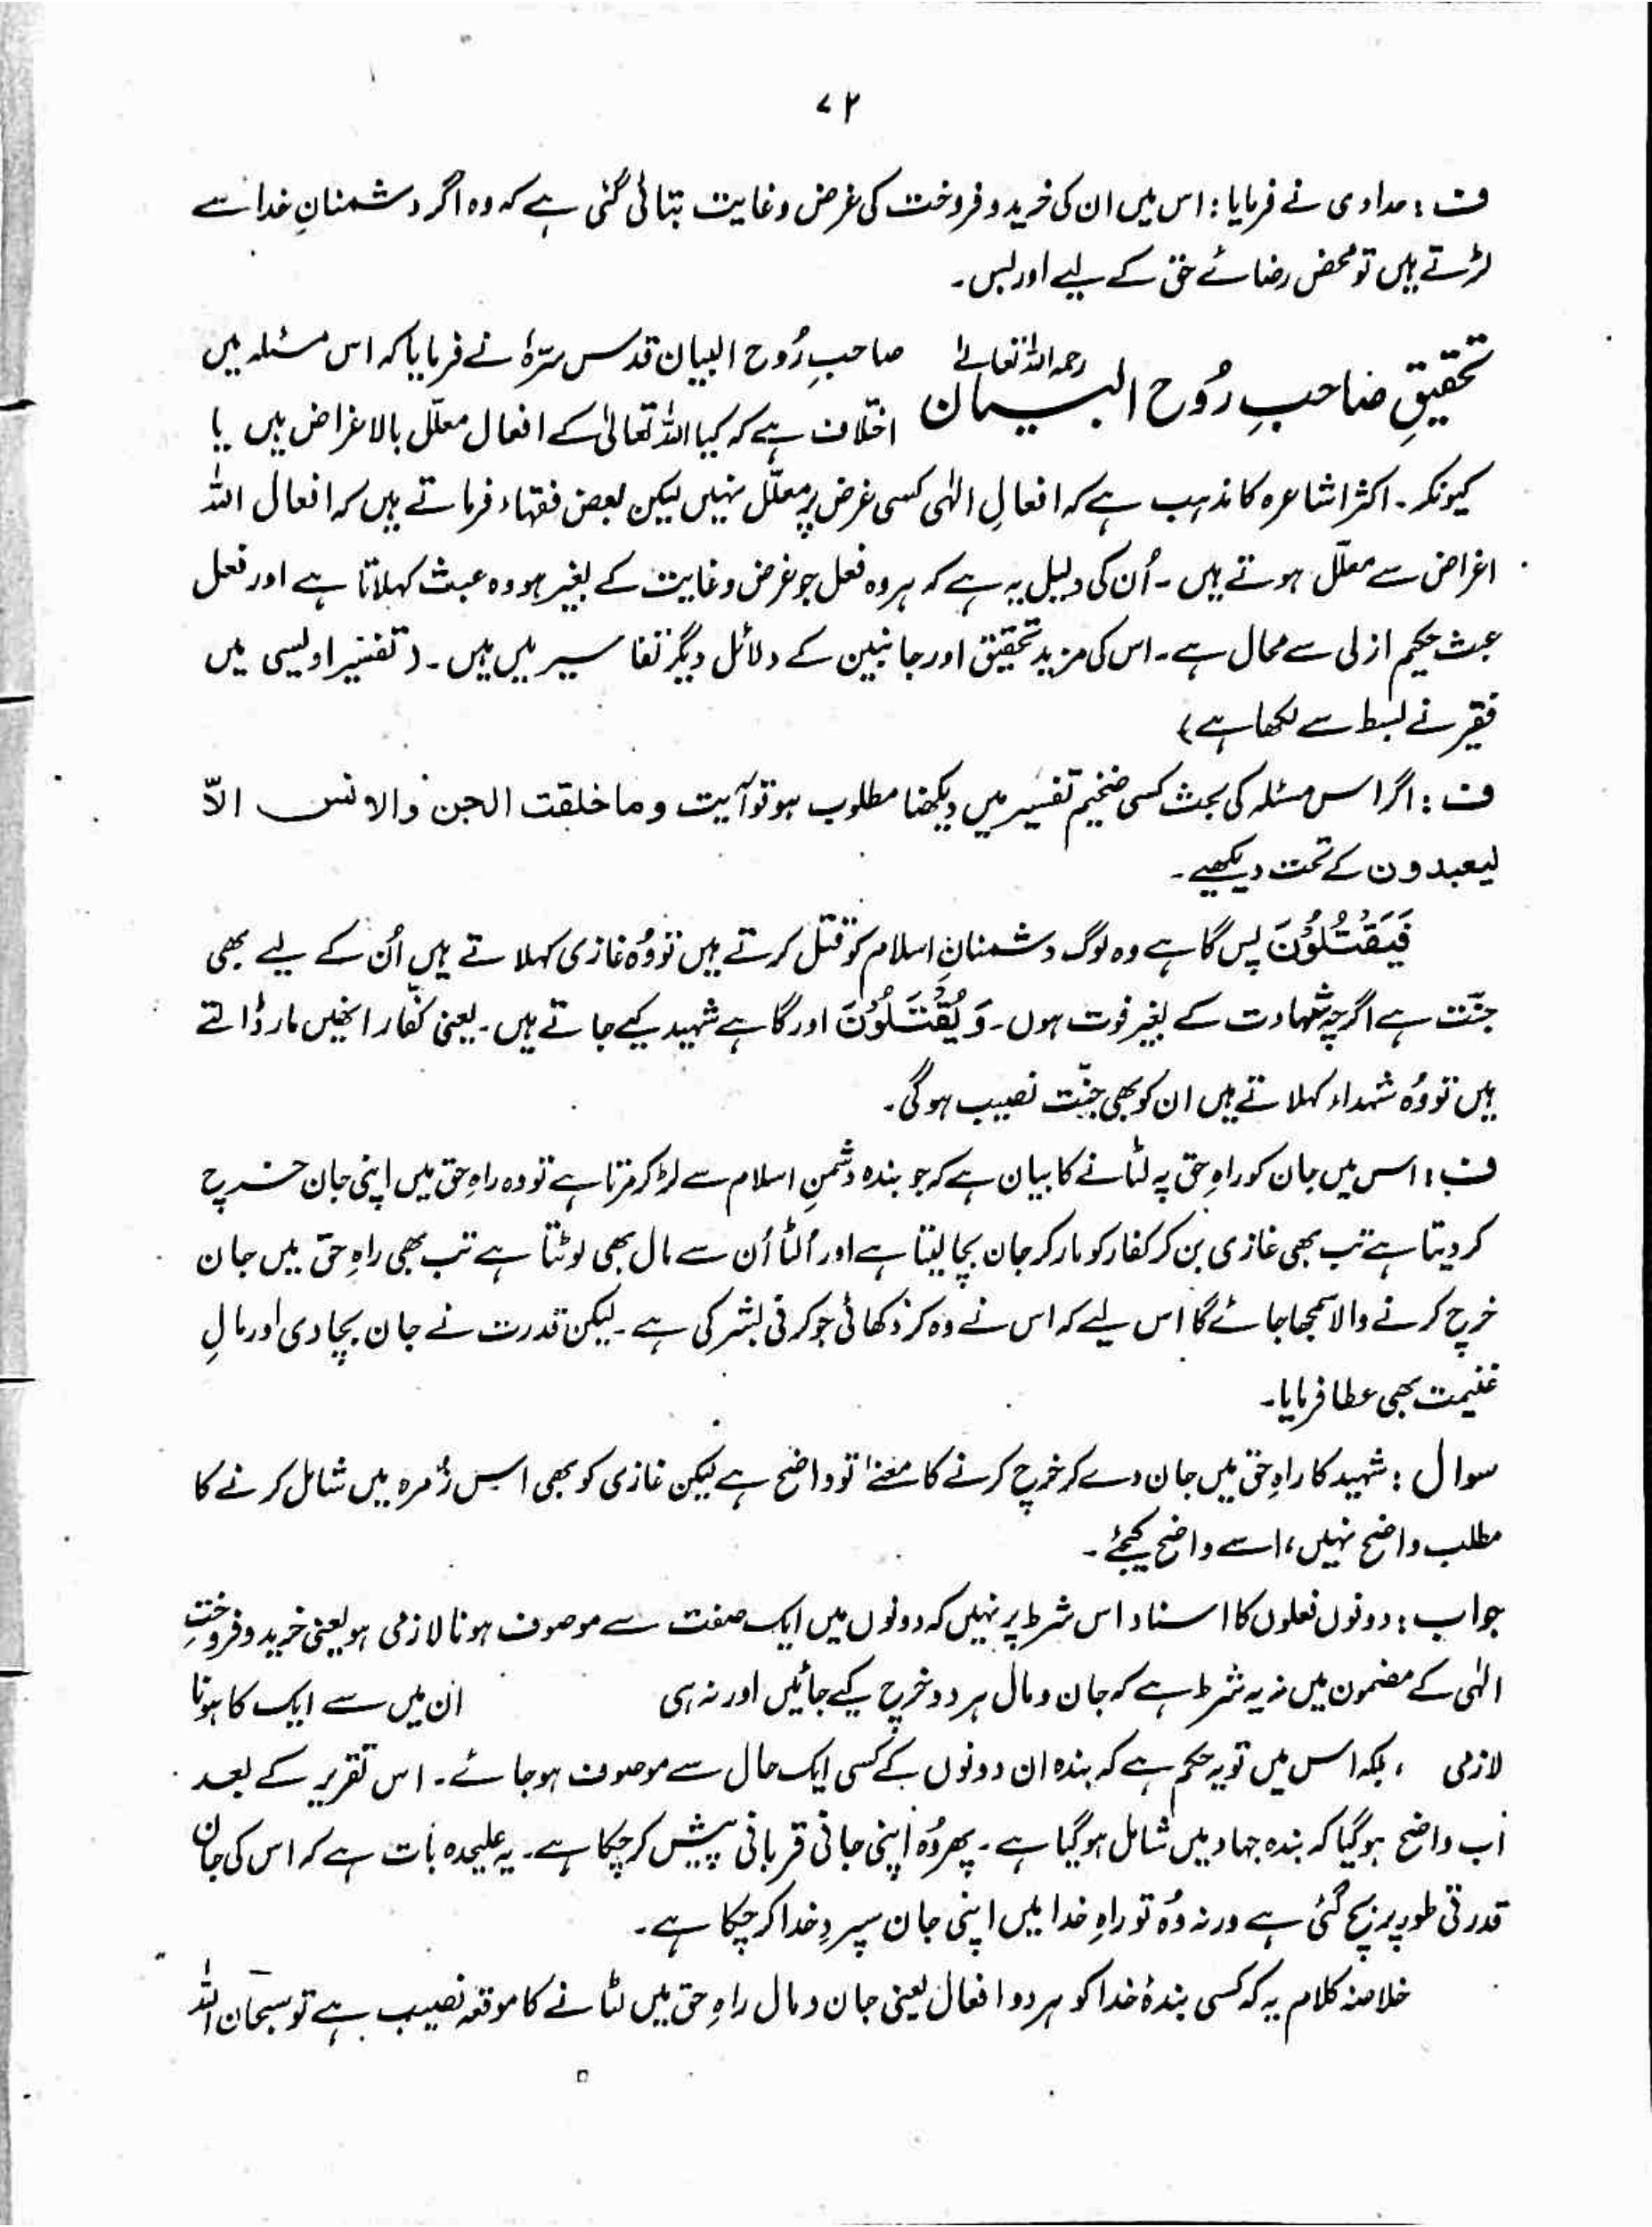 ۷۲
ف : حدادی نے فرمایا : اس میں ان کی خرید و فروخت کی غرض و غایت بتائی گئی ہے کہ وہ اگر دشمنانِ خدا سے
لڑتے ہیں تو محض رضائے حق کے لیے اور بس۔
تحقیقِ صاحبِ رُوح البیان رحمہ اللہ تعالےٰ صاحبِ رُوح البیان قدس سرّہٗ نے فرمایا کہ اس مسئلہ میں
اختلاف ہے کہ کیا اللہ تعالیٰ کے افعال معلّل بالاغراض ہیں یا
کیونکر۔ اکثر اشاعرہ کا مذہب ہے کہ افعالِ الٰہی کسی غرض پر معلّل نہیں لیکن بعض فقہاء فرماتے ہیں کہ افعال اللہ
اغراض سے معلّل ہوتے ہیں۔ اُن کی دلیل یہ ہے کہ ہر وہ فعل جو غرض و غایت کے بغیر ہو وہ عبث کہلاتا ہے اور فعل
عبث حکیم ازلی سے محال ہے۔ اس کی مزید تحقیق اور جانبین کے دلائل دیگر تفاسیر میں ہیں۔ (تفسیر اویسی میں
فقیر نے بسط سے لکھا ہے)
ف : اگر اس مسئلہ کی بحث کسی ضخیم تفسیر میں دیکھنا مطلوب ہو تو آیت وما خلقت الجن والانس الاّ
لیعبدون کے تحت دیکھیے۔
فَیَقْتُلُوْنَ پس گاہے وہ لوگ دشمنانِ اسلام کو قتل کرتے ہیں تو وُہ غازی کہلاتے ہیں اُن کے لیے بھی
جنّت ہے اگرچہ شہادت کے بغیر فوت ہوں۔ وَ یُقْتَلُوْنَ اور گاہے شہید کیے جاتے ہیں۔ یعنی کفّار انھیں مار ڈالتے
ہیں تو وُہ شہداء کہلاتے ہیں ان کو بھی جنّت نصیب ہو گی۔
ف : اس میں جان کو راہِ حق پہ لٹانے کا بیان ہے کہ جو بندہ دشمنِ اسلام سے لڑ کر مرتا ہے تو وہ راہِ حق میں اپنی جان خرچ
کر دیتا ہے تب بھی غازی بن کر کفار کو مار کر جان بچا لیتا ہے اور اُلٹا اُن سے مال بھی لوٹتا ہے تب بھی راہِ حق میں جان
خرچ کرنے والا سمجھا جائے گا اس لیے کہ اس نے وہ کر دکھائی جو کرنی بشر کی ہے۔ لیکن قدرت نے جان بچا دی اور مالِ
غنیمت بھی عطا فرمایا۔
سوال : شہید کا راہِ حق میں جان دے کر خرچ کرنے کا معنےٰ تو واضح ہے لیکن غازی کو بھی اس زُمرہ میں شامل کرنے کا
مطلب واضح نہیں، اسے واضح کیجئے۔
جواب : دونوں فعلوں کا اسناد اس شرط پر نہیں کہ دونوں میں ایک صفت سے موصوف ہونا لازمی ہو یعنی خرید و فروختِ
الٰہی کے مضمون میں نہ یہ شرط ہے کہ جان و مال ہر دو خرچ کیے جائیں اور نہ ہی ان میں سے ایک کا ہونا
لازمی ، بلکہ اس میں تو یہ حکم ہے کہ بندہ ان دونوں کے کسی ایک حال سے موصوف ہو جائے۔ اس تقریر کے بعد
اب واضح ہو گیا کہ بندہ جہاد میں شامل ہو گیا ہے۔ پھر وُہ اپنی جانی قربانی پیش کر چکا ہے۔ یہ علیحدہ بات ہے کہ اس کی جان
قدرتی طور پر بچ گئی ہے ورنہ وُہ تو راہِ خدا میں اپنی جان سپردِ خدا کر چکا ہے۔
خلاصۂ کلام یہ کہ کسی بندۂ خدا کو ہر دو افعال یعنی جان و مال راہِ حق میں لٹانے کا موقعہ نصیب ہے تو سبحان اللہ